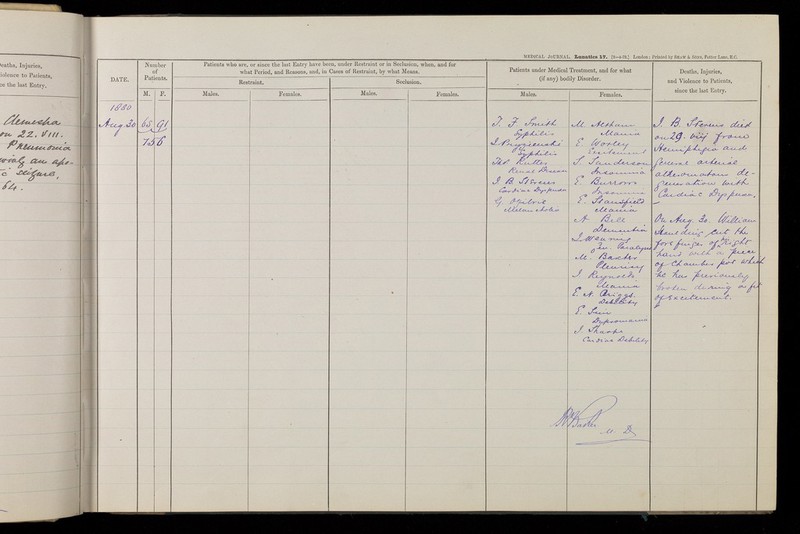 Deaths, Injuries,
Violence to Patients,
since the last Entry.
Clemesha
on 22. VIII.
Pneumonia
an apo-
seizure,
64.
MEDICAL JOURNAL. Lunatics 17. London: Printed by SHAW & SONS, Fetter Lane, E.C.
DATE.
Number
of
Patients.
M. F.
Patients who are, or since the last Entry have been, under Restraint or in Seclusion, when, and for
what Period, and Reasons, and, in Cases of Restraint, by what Means.
Restraint. Seclusion.
Males. Females. Males. Females.
Patients under Medical Treatment, and for what
(if any) bodily Disorder.
Males. Females.
Deaths, Injuries,
and Violence to Patients,
since the last Entry.
1880
Aug 30 65 91
156
T. F. Smith
Syphilis
Syphilis
Thos Rutter
Renal Disease
J. B. Stevens
Cardiac Dyspnoea
G. Ogilvie
Melancholia
M.
Mania
E Worley
Excitement
S. Sanderson
Insomnia
E. Burrows
Insomnia
E. Stansfield
Mania
A. Bell
Dementia
Gen. Paralysis
M. Baxter
Pleurisy
J Reynolds
Mania
E. A. Briggs
Debility
E
Dypsomania
J Sharpe
Cardiac Debility
J. B. Stevens died
on 29. VIII from
Hemiplegia and
general arterial
atheromatous de-
generation with
Cardiac Dyspnoea.
On Aug. 30. William
Maulding cut the
fore finger of his right
hand with a piece
of chamber pot which
he has previously
broken during a fit
of excitement.
Baker
M. D.